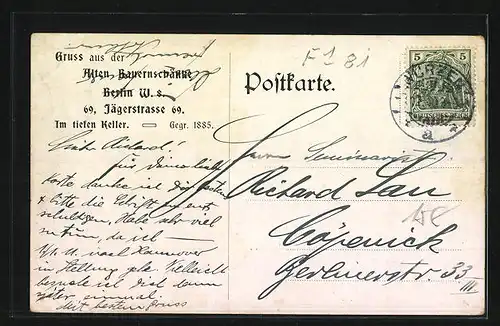 Gruss aus der
Alten Bauernschänke
Berlin W. 8.
69, Jägerstrasse 69.
Im tiefen Keller. Gegr. 1885.
F 1 81
Postkarte.
5 5
WURZEN
a
Lieber Richard!
für deine liebe
Karte danke ich dir besten
& bitte die Schrift zu ent-
schuldigen, habe sehr viel
zu tun, da ich
1/4. U. nach Hannover
in Stellung gehe. Vielleicht
besuche ich dich dann
später einmal.
Mit bestem Gruss
Herrn Seminarist
Richard Lau
Cöpenick
Berlinerstr. 33
III.